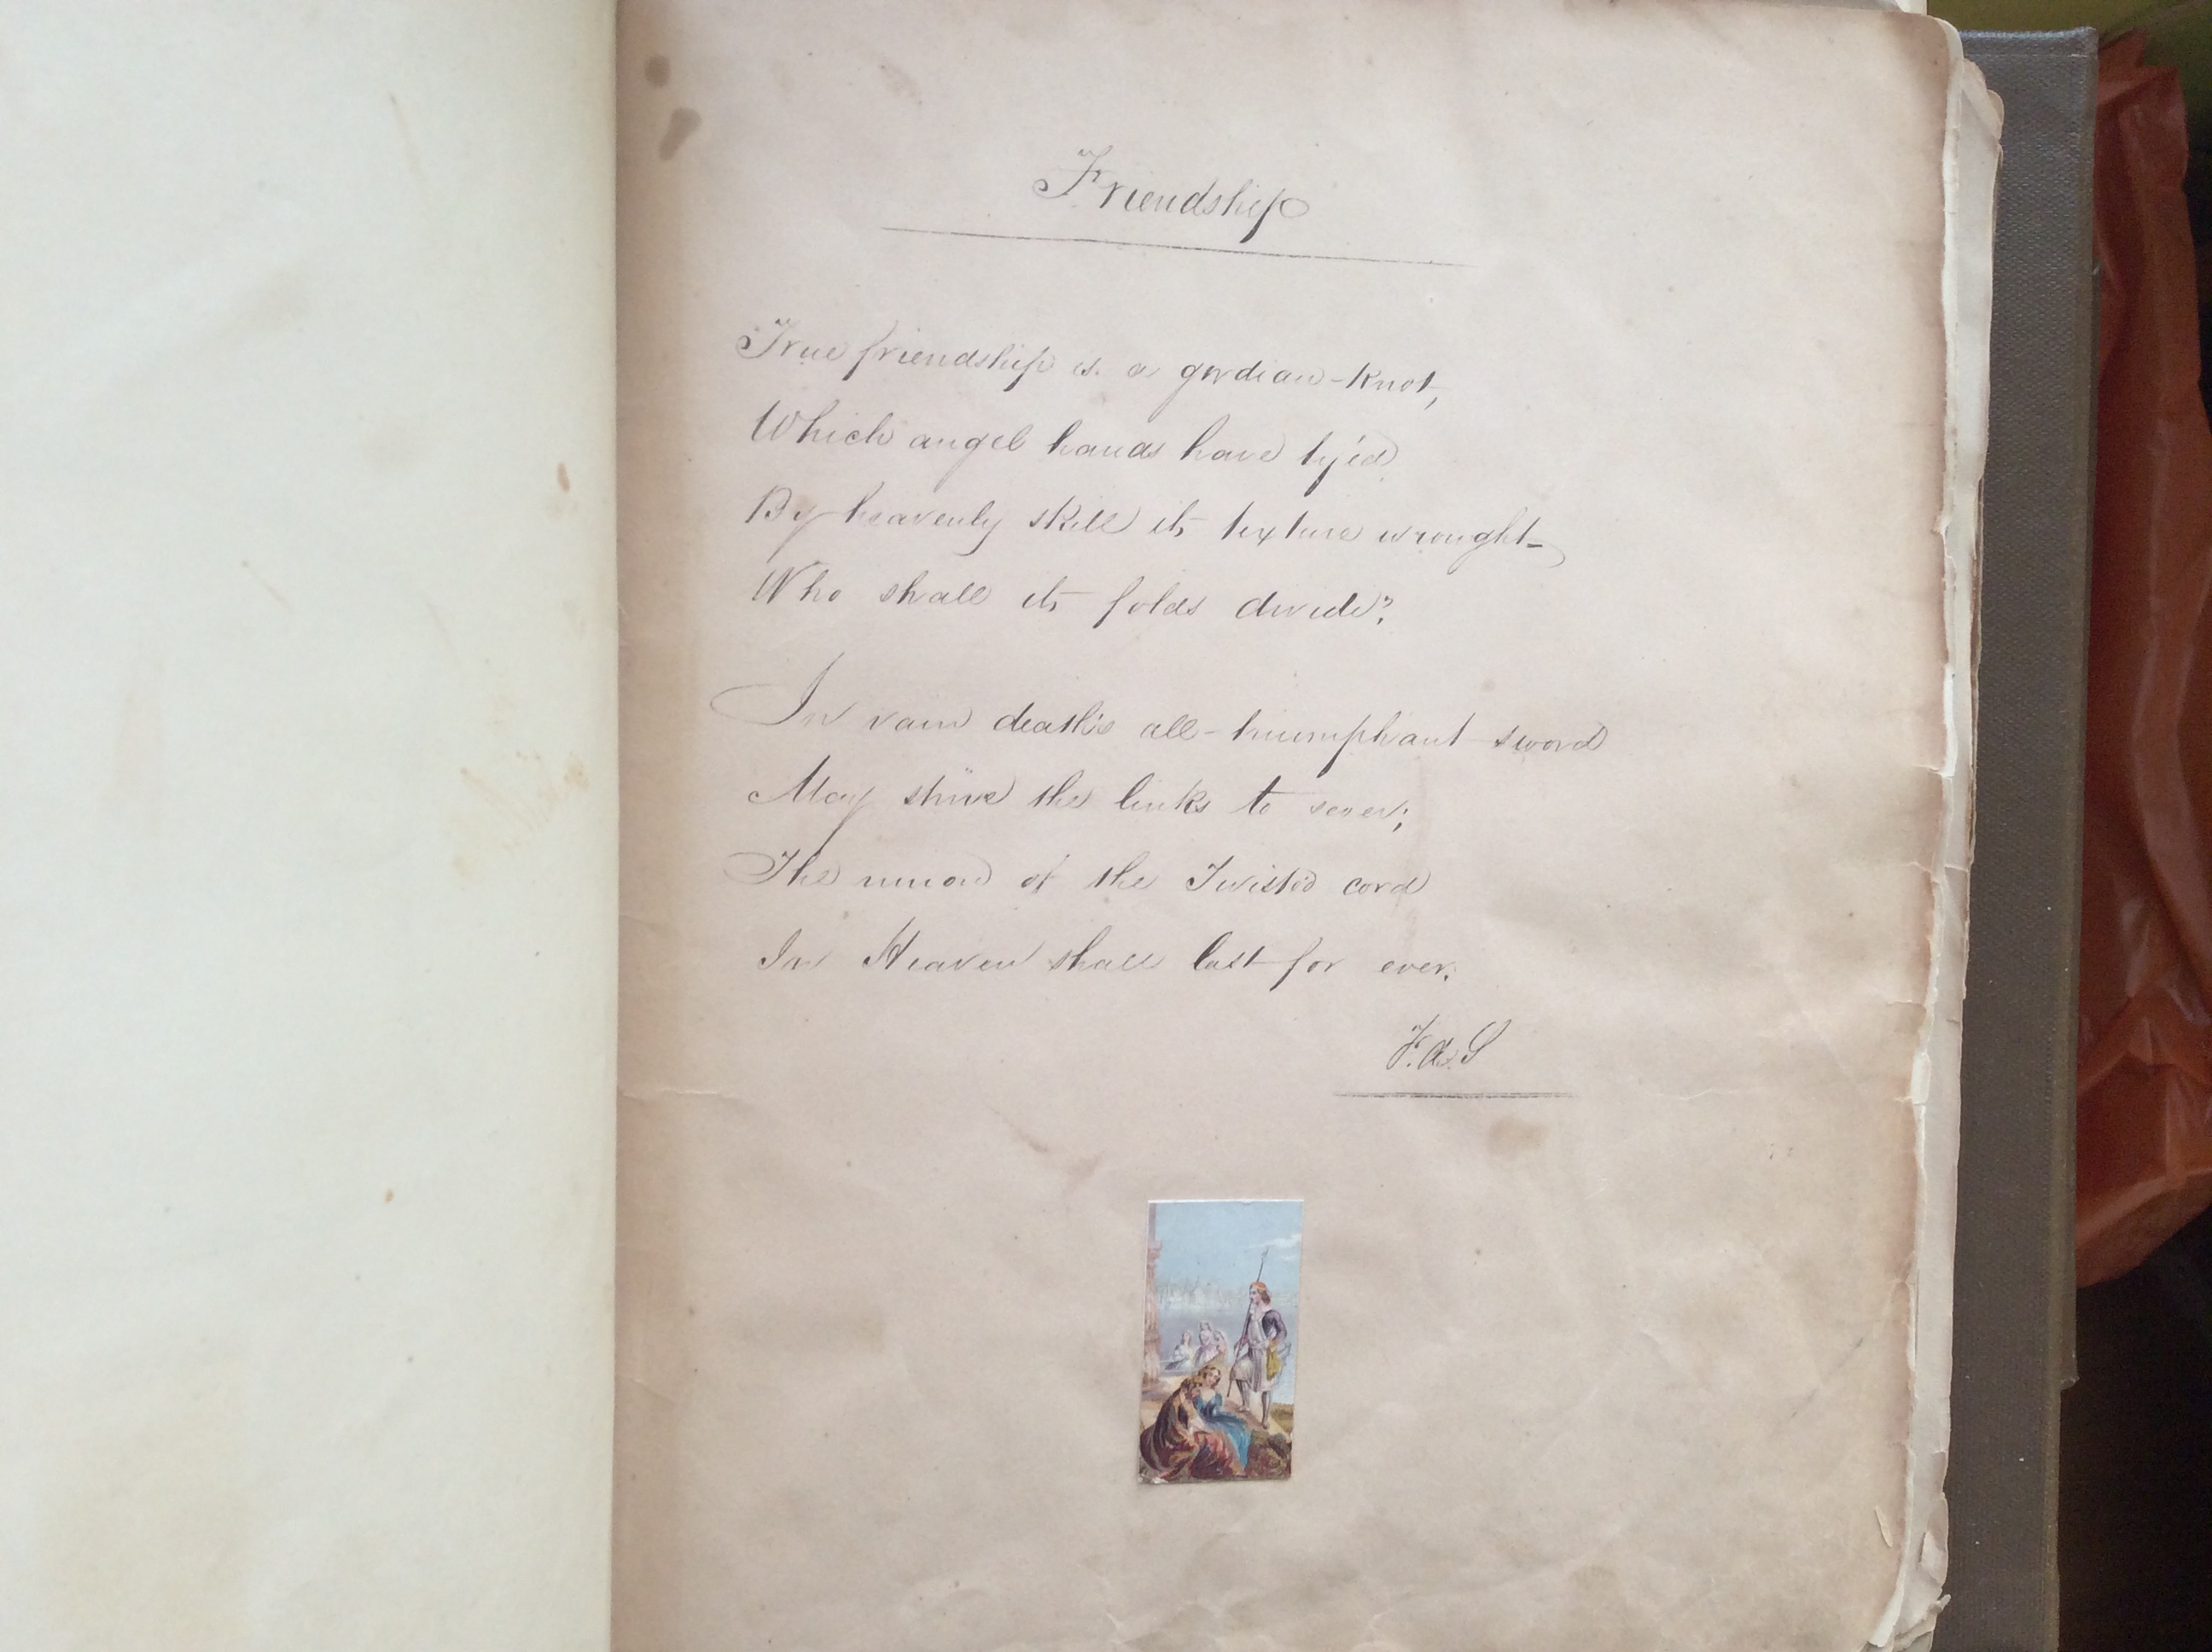 Friendship
True friendship is a gordian-knot,
Which angel hands have ty'd
By heavenly skill its texture wrought
Who shall its folds divide?
In vain death's all-triumphant sword
May strive the links to sever;
The union of the Twisted cord
In Heaven shall last for ever.
F.A.S